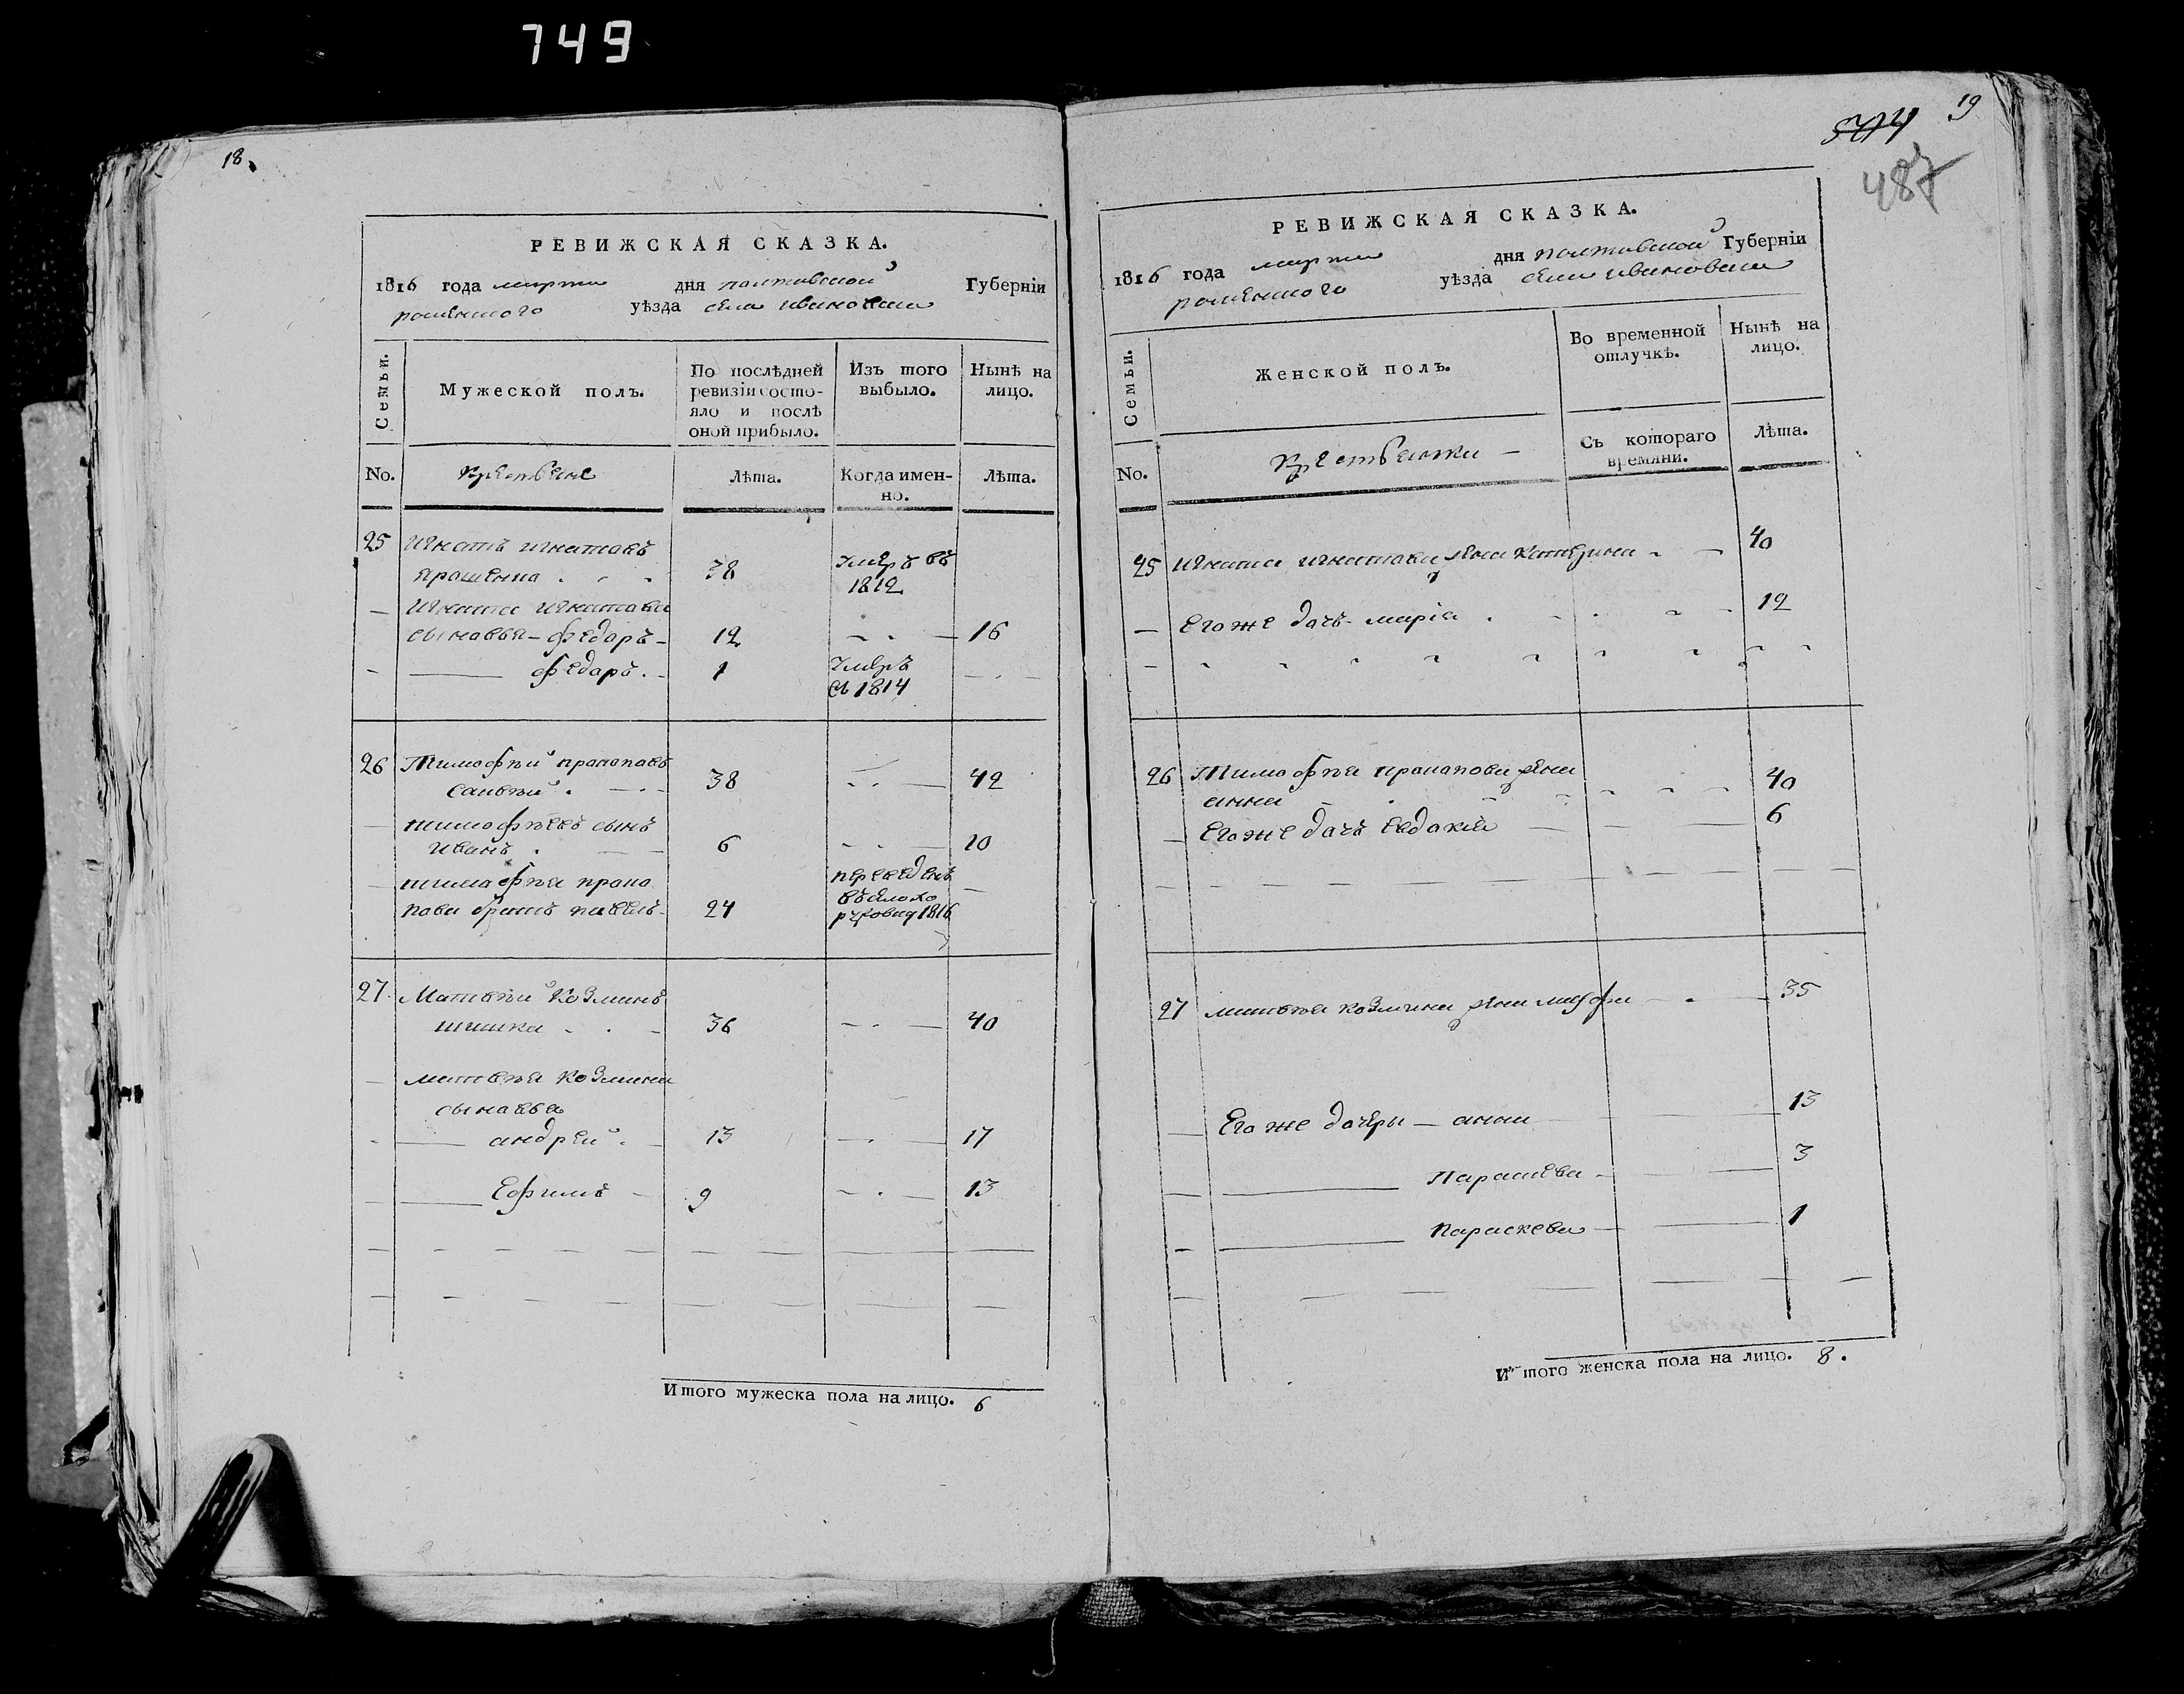 749
18.
РЕВИЖСКАЯ СКАЗКА.
1816 года марта дня полтавской Губерніи
роменского уѣзда села ивановки
Семьи. Мужеской полъ. По послѣдней ревизіи состояло и послѣ оной прибыло. Изъ того выбыло. Нынѣ на лицо.
No. Крестьяне Лѣта. Когда именно. Лѣта.
25 Игнатъ игнатовъ
ярошенко 38 умеръ въ 1812
— Игната игнатова
сыновья – федоръ 12 — 16
— федоръ. 1 умеръ
въ 1814
26 Тимофѣй прокоповъ
38 — 42
— тимофѣевъ сынъ
иванъ 6 — 10
— тимофѣя проко
пова братъ павелъ 24 переведенъ
1816
27 Матвѣй Козминъ
шишка 36 — 40
— матвѣя козмина
сыновья
— андрей 13 — 17
— Ефимъ 9 — 13
Итого мужеска пола на лицо. 6
19
487
РЕВИЖСКАЯ СКАЗКА.
1816 года марта дня полтавской Губерніи
роменского уѣзда села ивановки
Семьи. Женской полъ. Во временной отлучкѣ. Нынѣ на лицо.
No. Крестьянки — Съ котораго времяни. Лѣта.
25 Игната игнатова жена катерина 40
— Егоже дочь марія 12
26 Тимофѣя прокопова жена
анна 40
— Егоже дочь Евдокія 6
27 матвѣя козмина жена марфа 35
— Егоже дочеры — анна 13
— Параскева 3
— Параскева 1
Итого женска пола на лицо. 8.